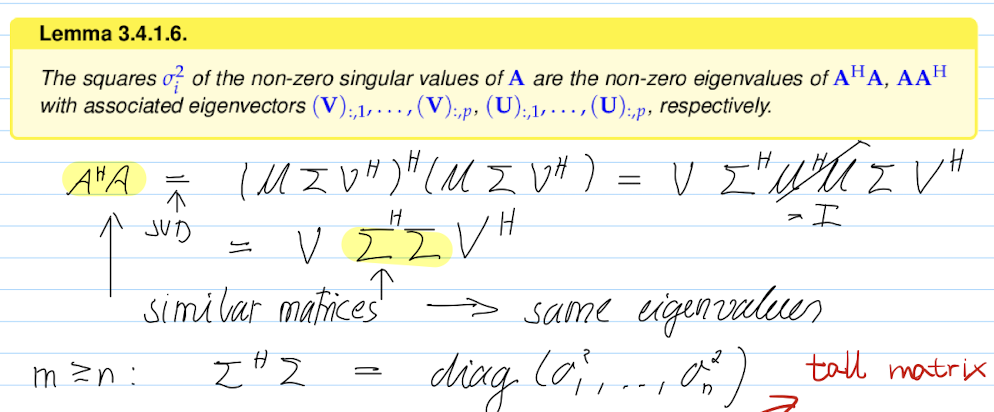 Lemma 3.4.1.6.
The squares σᵢ² of the non-zero singular values of A are the non-zero eigenvalues of AᴴA, AAᴴ
with associated eigenvectors (V):,1, . . . , (V):,p, (U):,1, . . . , (U):,p, respectively.
AᴴA = (U Σ Vᴴ)ᴴ(U Σ Vᴴ) = V Σᴴ UᴴU Σ Vᴴ
↑ SVD = I
= V ΣᴴΣ Vᴴ
similar matrices → same eigenvalues
m ≥ n : ΣᴴΣ = diag (σ₁², . . , σₙ²) tall matrix